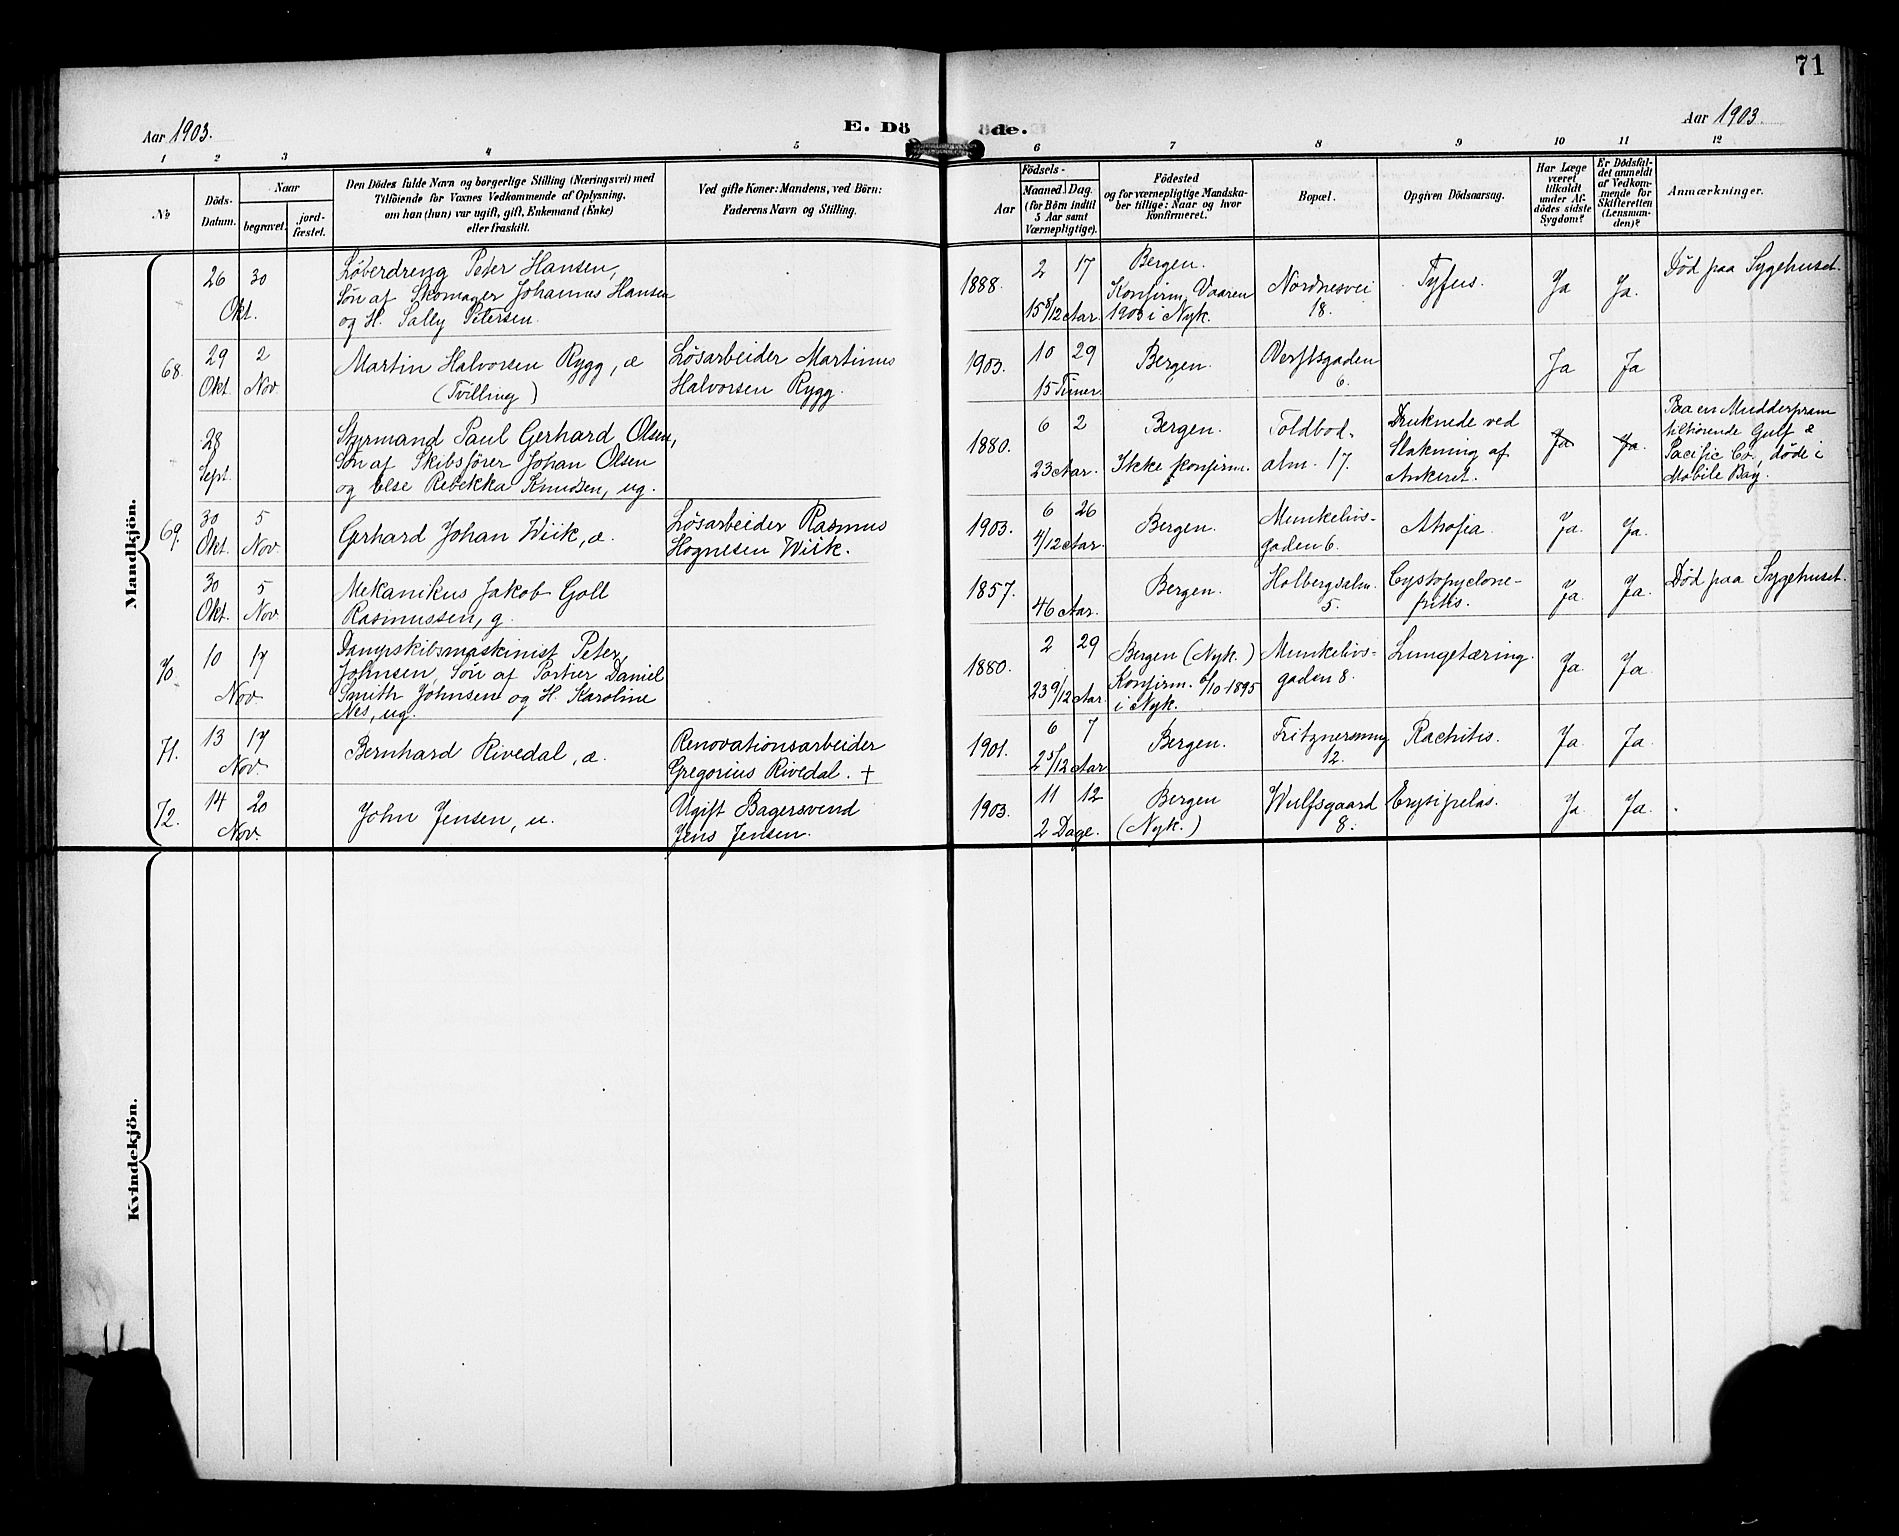 71
Aar 1903.
E. Dö
de.
Aar 1903
1 2 3 4 5 6 7 8 9 10 11 12
№
Döds-
Datum.
Naar
begravet.
jord-
fæstet.
Den Dödes fulde Navn og borgerlige Stilling (Næringsvei) med
Tilföiende for Voxnes Vedkommende af Oplysning,
om han (hun) var ugift, gift, Enkemand (Enke)
eller fraskilt.
Ved gifte Koner: Mandens, ved Börn:
Faderens Navn og Stilling.
Födsels-
Aar
Maaned
Dag
(for Börn indtil
5 Aar samt
Værnepligtige).
Födested
og for værnepligtige Mandska-
ber tillige: Naar og hvor
konfirmeret.
Bopæl.
Opgiven Dödsaarsag.
Har Læge
været
tilkaldt
under Af-
dödes sidste
Sygdom?
Er Dödsfal-
det anmeldt
af Vedkom-
mende for
Skifteretten
(Lensman-
den)?
Anmærkninger.
Mandkjön.
26 30
Okt.
Løberdreng Peter Hansen,
Søn af Skomager Johannes Hansen
og H. Sally Petersen.
1888. 2 17
15 8/12 Aar.
Bergen.
Konfirm. Vaaren
1903 i Nyk.
Nordnesvei
18.
Tyfus.
Ja
Ja.
Død paa Sygehuset.
68.
29 2
Okt. Nov
Martin Halvorsen Rygg, æ
(Tvilling)
Løsarbeider Martinus
Halvorsen Rygg.
1903. 10 29
15 Timer.
Bergen.
Verftsgaden
6.
Ja
Ja
28
Sept.
Styrmand Paul Gerhard Olsen,
Søn af Skibsfører Johan Olsen
og Else Rebekka Knudsen, ug.
1880. 6 2
23 Aar.
Bergen.
Ikke konfirm.
Toldbod-
alm. 17.
Druknede ved
Slakning af
Ankeret.
Ja
Ja.
Paa en Mudderpram
tilhørende Gulf &
Pacific Co., døde i
Mobile Bay.
69.
30 5
Okt. Nov
Gerhard Johan Wiik, æ.
Løsarbeider Rasmus
Hognesen Wiik.
1903. 6 26
4/12 Aar.
Bergen.
Munkelivs-
gaden 6.
Atrofia.
Ja.
Ja.
30 5
Okt. Nov
Mekanikus Jakob Goll
Rasmussen, g.
1857.
46 Aar.
Bergen.
Holbergsalm.
5.
Cystopyelone-
fritis.
Ja.
Ja.
Død paa Sygehuset.
70.
10 17
Nov.
Dampskibsmaskinist Peter
Johnsen, Søn af Portier Daniel
Smith Johnsen og H. Karoline
Nes, ug.
1880. 2 29
23 9/12 Aar.
Bergen (Nyk.)
Konfirm. 6/10-1895
i Nyk.
Munkelivs-
gaden 8.
Lungetæring.
Ja.
Ja.
71.
13 17
Nov.
Bernhard Rivedal, æ.
Renovationsarbeider
Gregorius Rivedal. +
1901. 6 7
2 5/12 Aar
Bergen.
Fritznersmug
12.
Rachitis.
Ja.
Ja.
72.
14 20
Nov.
John Jensen, u.
Ugift Bagersvend
Jens Jensen.
1903. 11 12
2 Dage.
Bergen
(Nyk.)
Wulfsgaard
8.
Erysipelas.
Ja.
Ja.
Kvindekjön.